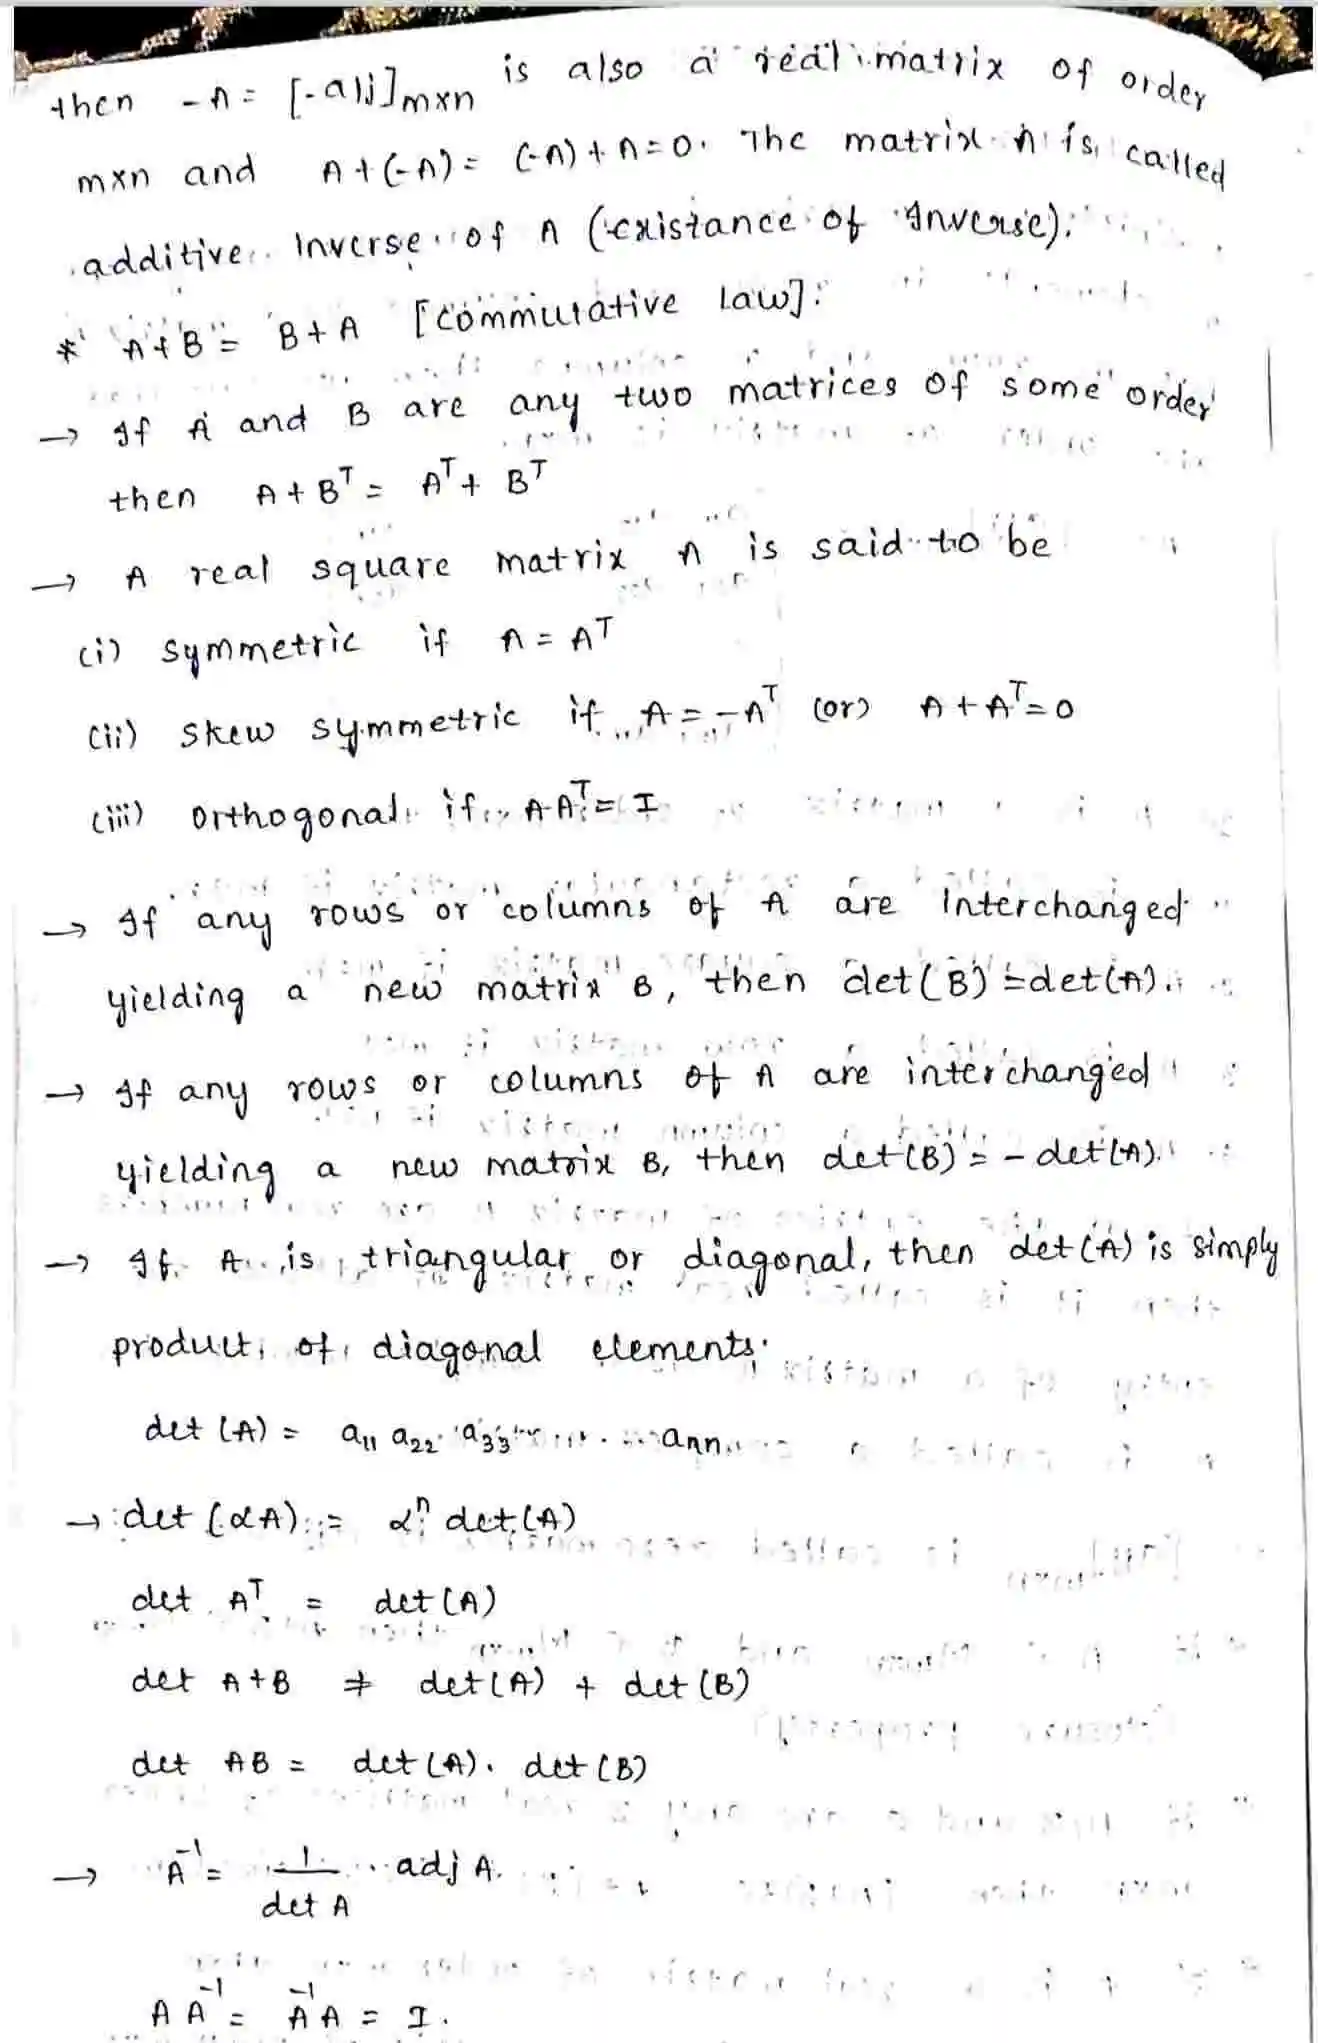 then -A = [-aij]mxn is also a real matrix of order
mxn and A+(-A) = (-A)+A=0. The matrix A is called
additive Inverse of A (existance of Inverse).
* A+B = B+A [commutative law].
→ If A and B are any two matrices of some order
then A+B^T = A^T + B^T
→ A real square matrix A is said to be
(i) symmetric if A = A^T
(ii) skew symmetric if A = -A^T (or) A+A^T=0
(iii) orthogonal if AA^T = I
→ If any rows or columns of A are Interchanged
yielding a new matrix B, then det(B) = det(A).
→ If any rows or columns of A are interchanged
yielding a new matrix B, then det(B) = -det(A).
→ If A is triangular or diagonal, then det(A) is simply
product of diagonal elements.
det(A) = a11 a22 a33 ...... ann
→ det(αA) = α^n det(A)
det A^T = det(A)
det A+B ≠ det(A) + det(B)
det AB = det(A). det(B)
→ A^-1 = 1/det A . adj A.
A A^-1 = A^-1 A = I.